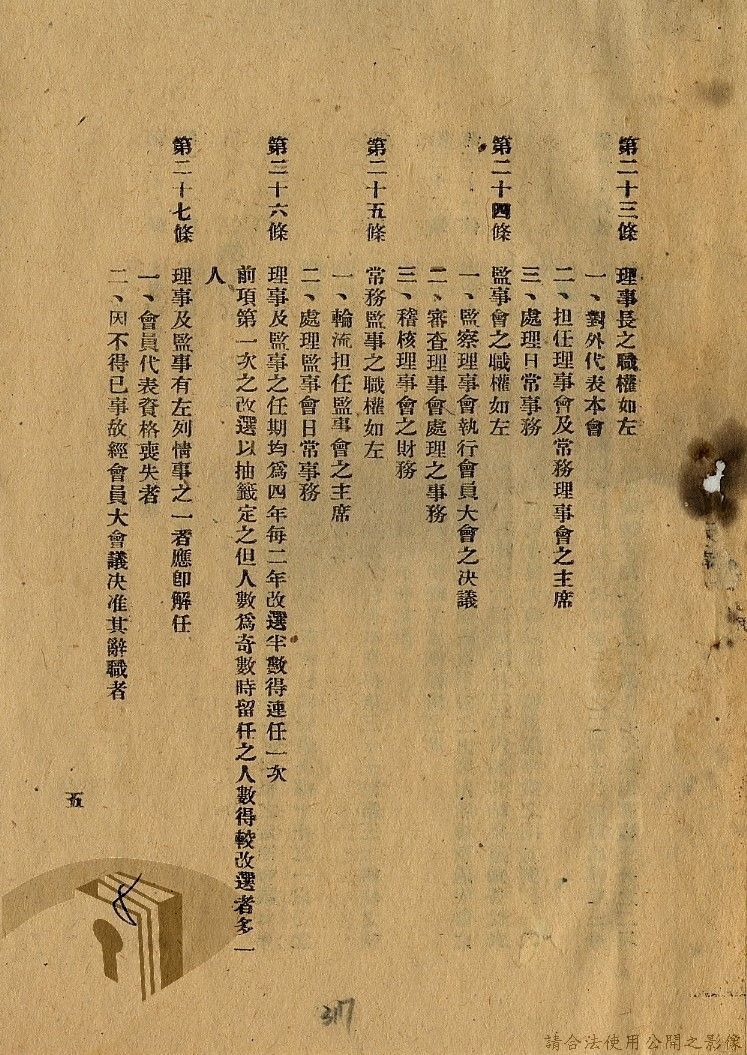 第二十三條　理事長之職權如左
一、對外代表本會
二、担任理事會及常務理事會之主席
三、處理日常事務
第二十四條　監事會之職權如左
一、監察理事會執行會員大會之決議
二、審查理事會處理之事務
三、稽核理事會之財務
第二十五條　常務監事之職權如左
一、輪流担任監事會之主席
二、處理監事會日常事務
第二十六條　理事及監事之任期均爲四年每二年改選半數得連任一次
前項第一次之改選以抽籤定之但人數爲奇數時留任之人數得較改選者多一
人
第二十七條　理事及監事有左列情事之一者應卽解任
一、會員代表資格喪失者
二、因不得已事故經會員大會議決准其辭職者
五
8
317
請合法使用公開之影像